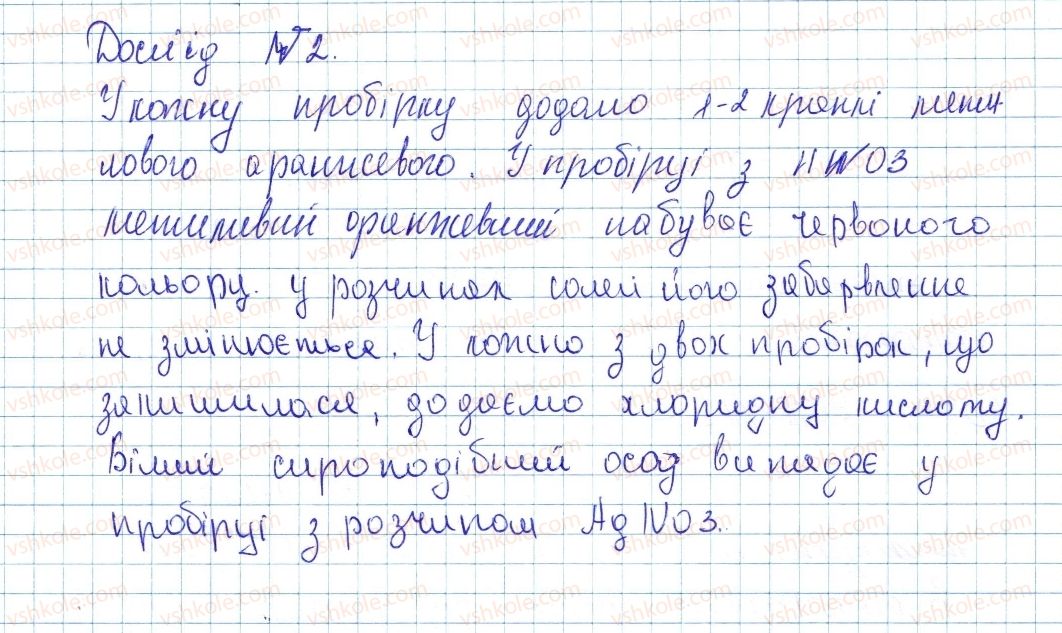 Дослід №2.
У кожну пробірку додамо 1-2 краплі мети
лового оранжевого. У пробірці з HNO3
метиловий оранжевий набуває червоного
кольору. У розчинах солей його забарвлення
не змінюється. У кожно з двох пробірок, що
залишилася, додаємо хлоридну кислоту.
Білий сироподібний осад випадає у
пробірці з розчином AgNO3.